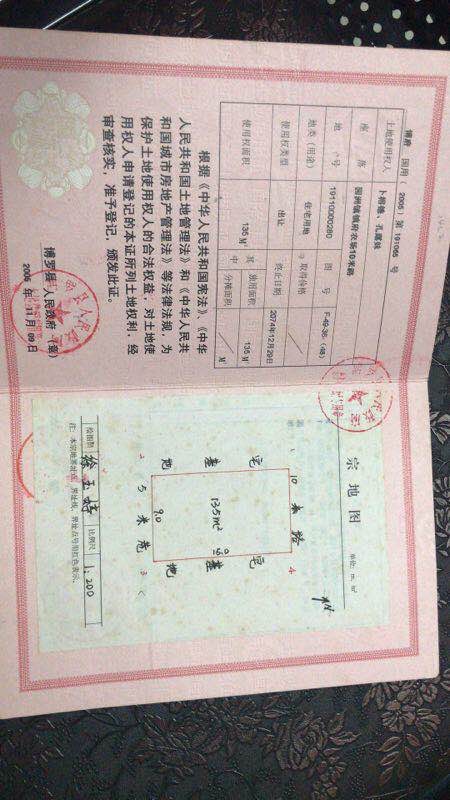 博府 国用 (2005) 第 191065 号
土地使用权人
座 落 园洲镇镇府农场10米路
地 号 19110000280 图 号 F-49-36-(48)
地类 (用途) 住宅用地 取得价格
使用权类型 出让 终止日期 2074年12月29日
使用权面积 135 M² 其中 独用面积 135 M²
分摊面积 / M²
根据《中华人民共和国宪法》、《中华
人民共和国土地管理法》和《中华人民共
和国城市房地产管理法》等法律法规，为
保护土地使用权人的合法权益，对土地使
用权人申请登记的本证所列土地权利，经
审查核实，准予登记，颁发此证。
博罗县人民政府 (章)
2005 年 11 月 09 日
宗地图
单位: m. m²
10 米 路
4
宅 基 地
135m²
宅 基 地
9.0
2 5 米 巷 3
绘图员 比例尺 1:200